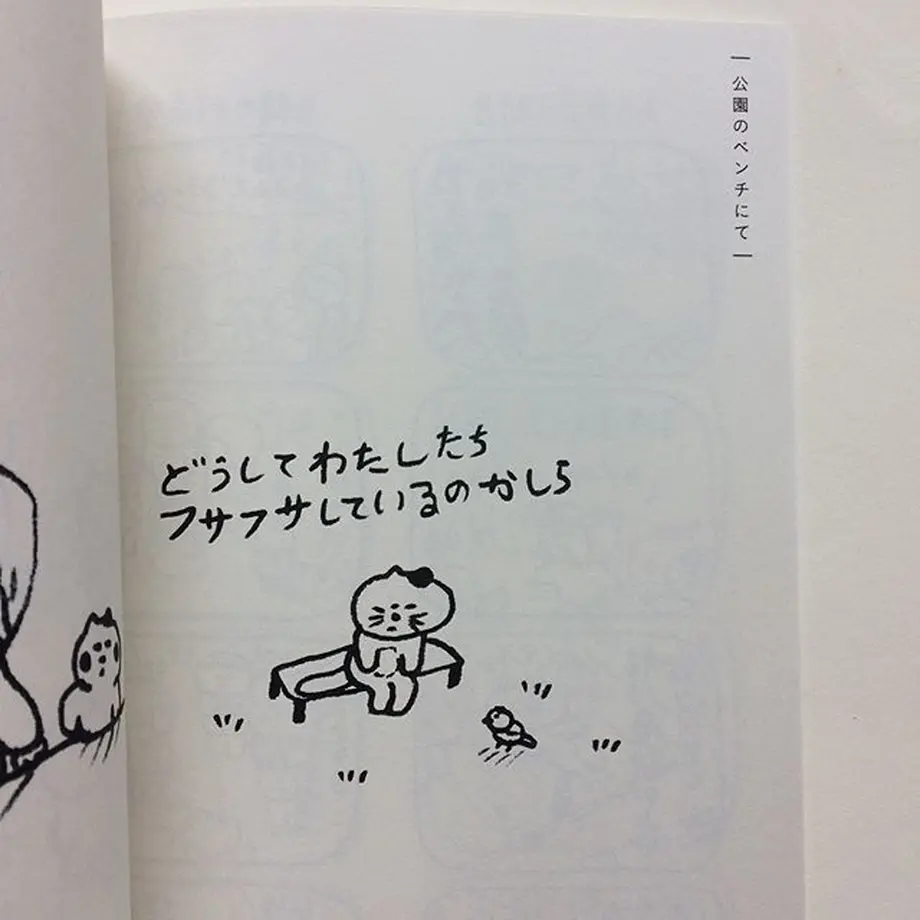 公園のベンチにて
どうしてわたしたち
フサフサしているのかしら